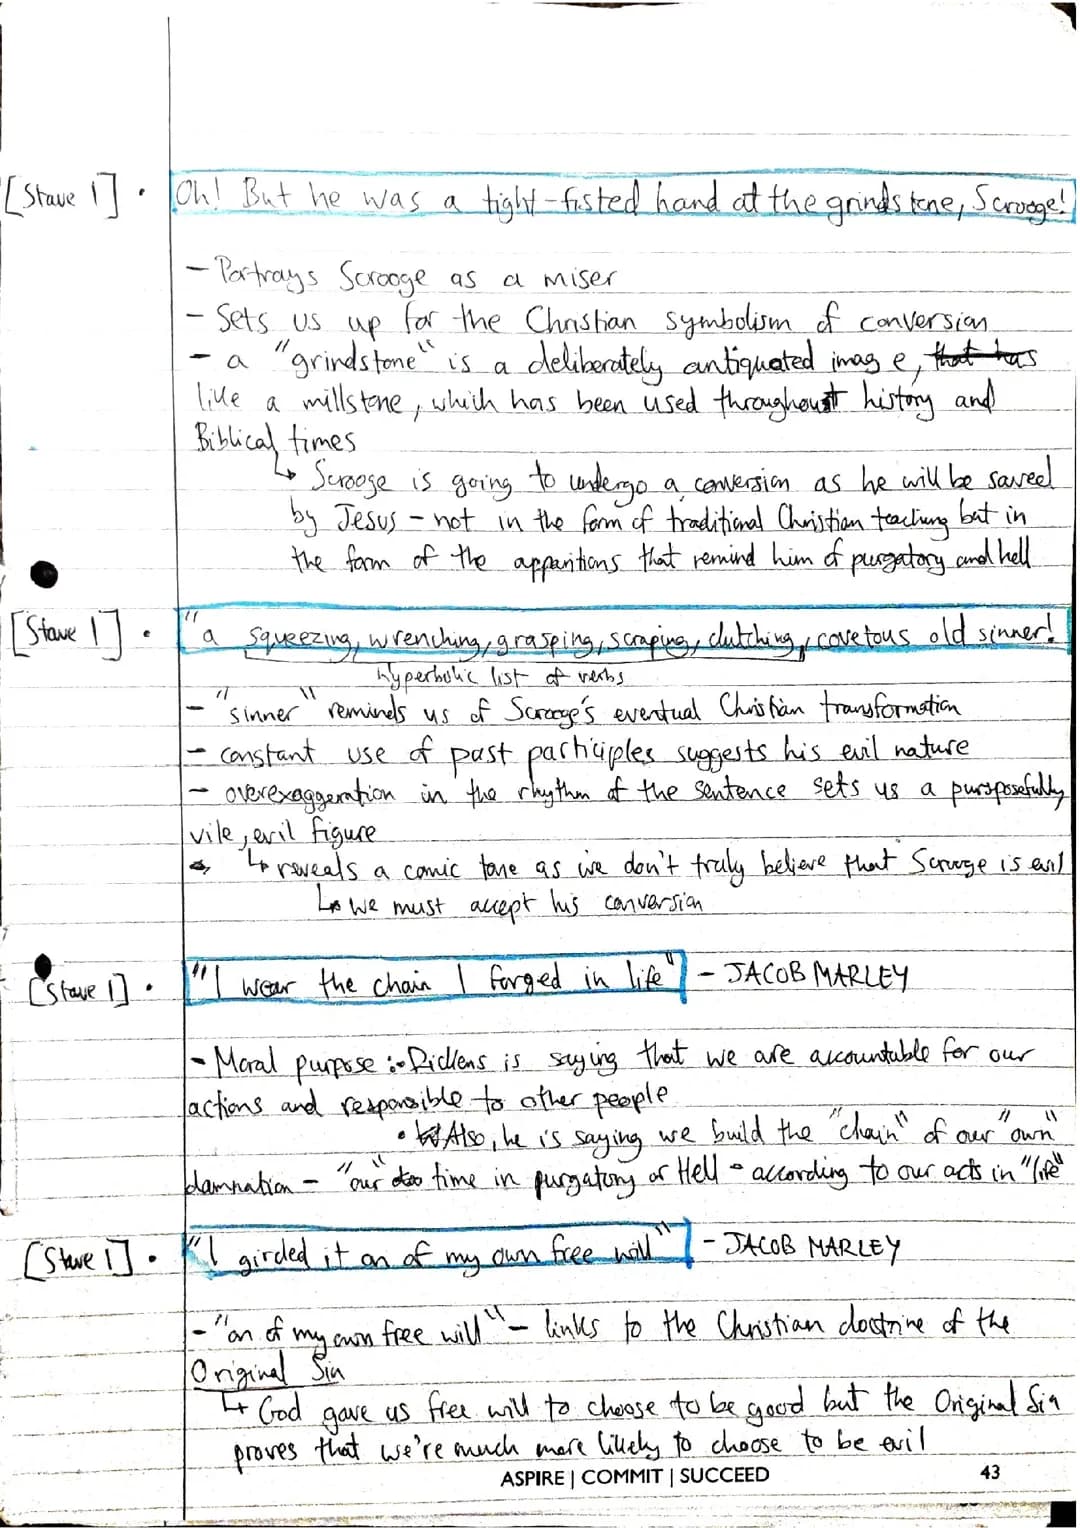 [Stave 1] • Oh! But he was a tight-fisted hand at the grindstone, Scrooge!
– Portrays Scrooge as a miser
– Sets us up for the Christian symbolism of conversion
– a "grindstone" is a deliberately antiquated image, that has
like a millstone, which has been used throughout history and
Biblical times
↳ Scrooge is going to undergo a conversion as he will be saved
by Jesus – not in the form of traditional Christian teaching but in
the form of the apparitions that remind him of purgatory and hell
[Stave 1] • "a squeezing, wrenching, grasping, scraping, clutching, covetous old sinner!
hyperbolic list of verbs
– "sinner" reminds us of Scrooge's eventual Christian transformation
– constant use of past participles suggests his evil nature
– overexaggeration in the rhythm of the sentence sets us a pursposefully
vile, evil figure
↳ reveals a comic tone as we don't truly believe that Scrooge is evil
↳ we must accept his conversion
[Stave 1] • "I wear the chain I forged in life" – JACOB MARLEY
– Moral purpose :– Dickens is saying that we are accountable for our
actions and responsible to other people
• Also, he is saying we build the "chain" of our "own"
damnation – "our" time in purgatory or Hell – according to our acts in "life"
[Stave 1] • "I girded it on of my own free will" – JACOB MARLEY
– "on of my own free will" – links to the Christian doctrine of the
Original Sin
↳ God gave us free will to choose to be good but the Original Sin
proves that we're much more likely to choose to be evil
ASPIRE | COMMIT | SUCCEED 43